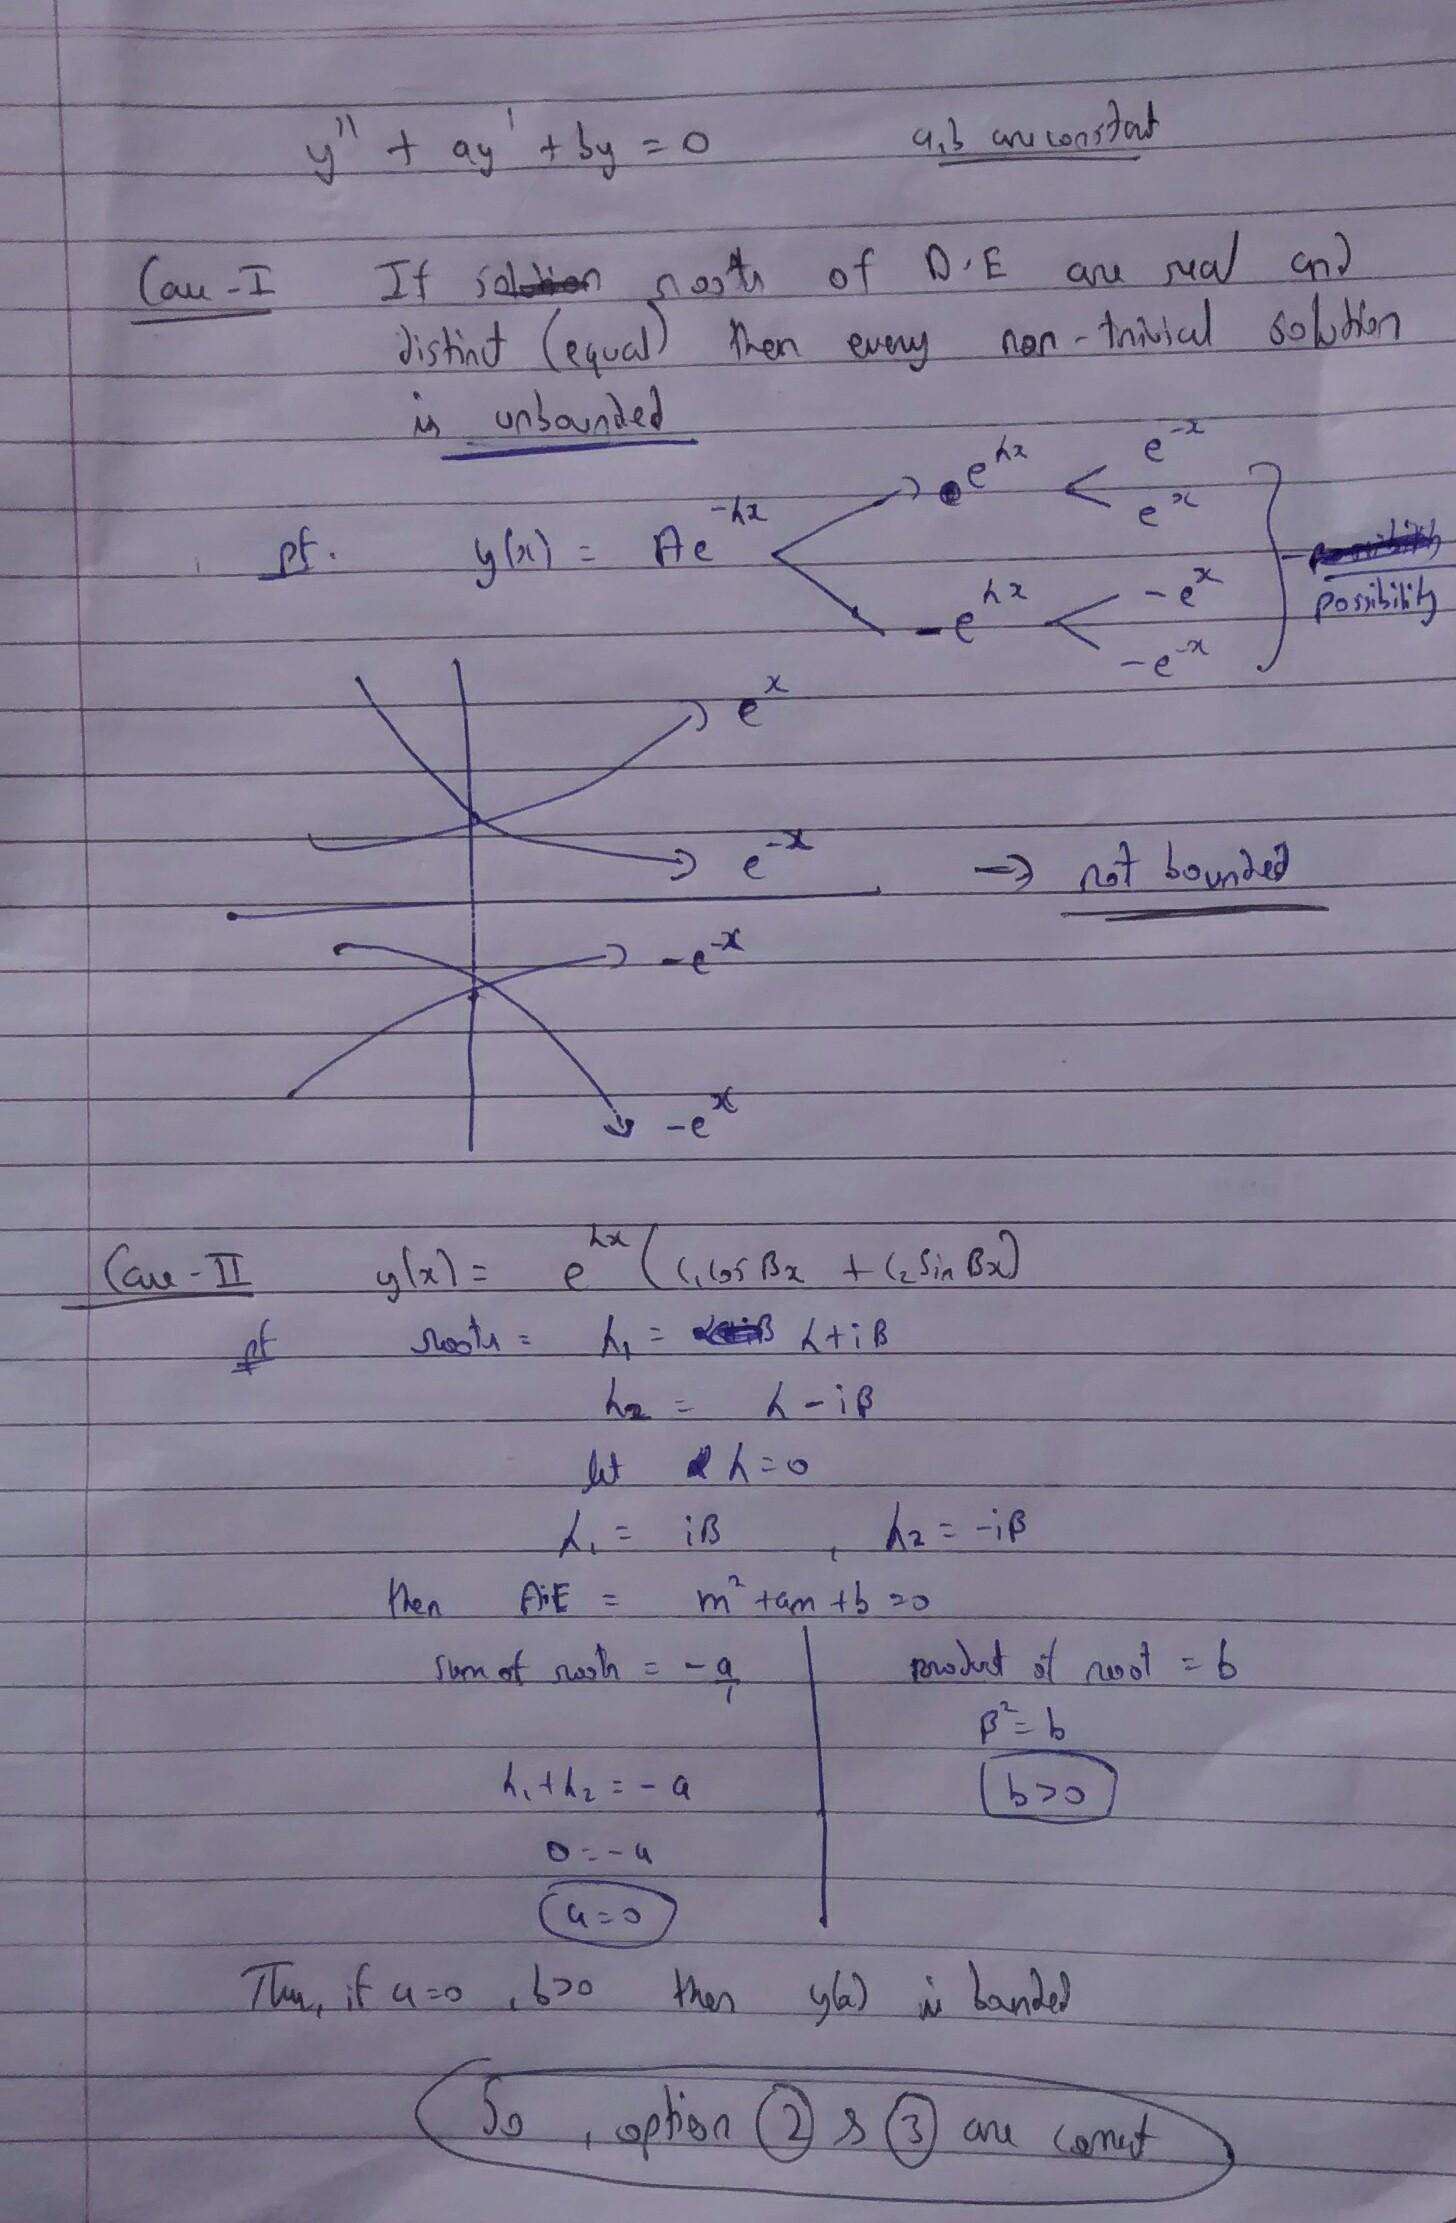 y'' + ay' + by = 0   a,b are constant
Case-I   If roots of D.E are real and
distinct (equal) then every non-trivial solution
is unbounded
pf.   y(x) = Ae^{-λx}   e^{λx} < e^{-x}
e^{x}
-e^{λx} < -e^{x}
-e^{-x}
possibility
e^{x}
e^{-x} → not bounded
-e^{-x}
-e^{x}
Case-II   y(x) = e^{λx} (C₁cosβx + C₂Sinβx)
pf   roots = λ₁ = λ+iβ
λ₂ = λ-iβ
let λ=0
λ₁ = iβ , λ₂ = -iβ
then A.E = m² + am + b = 0
sum of roots = -a/1   product of root = b
β² = b
λ₁+λ₂ = -a   b>0
0 = -a
a=0
Thus, if a=0 , b>0 then y(x) is bounded
So , option ② & ③ are correct